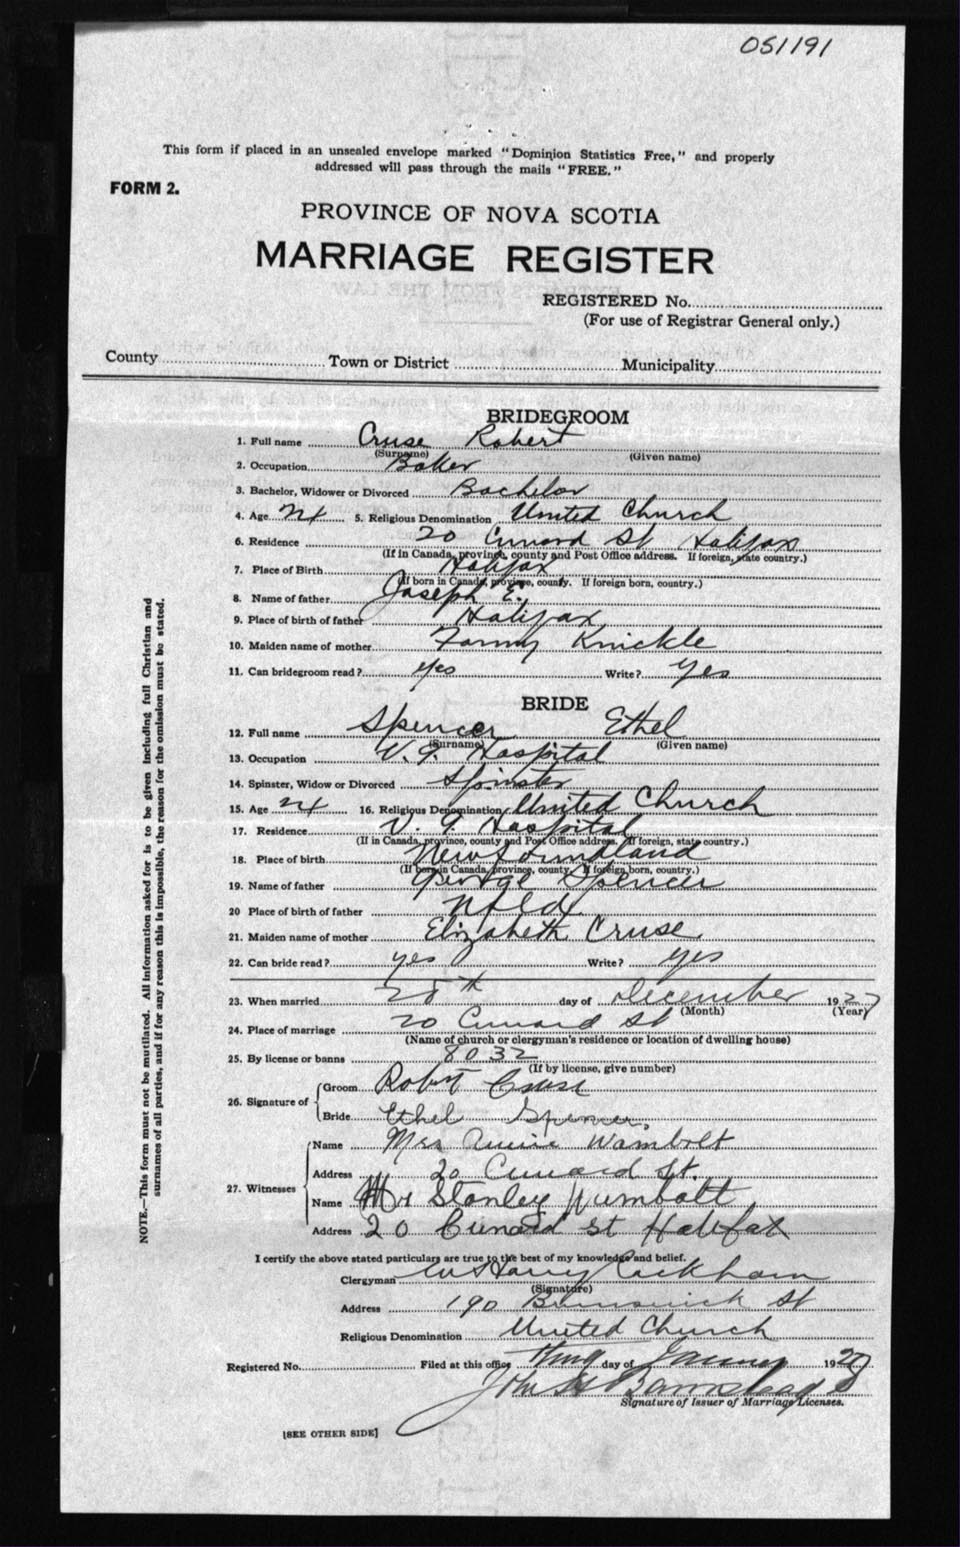 051191
This form if placed in an unsealed envelope marked "Dominion Statistics Free," and properly
addressed will pass through the mails "FREE."
FORM 2.
PROVINCE OF NOVA SCOTIA
MARRIAGE REGISTER
REGISTERED No.
(For use of Registrar General only.)
County Town or District Municipality
BRIDEGROOM
1. Full name Cruse Robert
(Surname) (Given name)
2. Occupation Baker
3. Bachelor, Widower or Divorced Bachelor
4. Age 5. Religious Denomination United Church
6. Residence 20 Cunard St Halifax
(If in Canada, province, county and Post Office address. If foreign, state country.)
7. Place of Birth Halifax
(If born in Canada, province, county. If foreign born, country.)
8. Name of father Joseph E.
9. Place of birth of father Halifax
10. Maiden name of mother Fanny Knickle
11. Can bridegroom read? yes Write? yes
BRIDE
12. Full name Spencer Ethel
(Surname) (Given name)
13. Occupation V. G. Hospital
14. Spinster, Widow or Divorced Spinster
15. Age 16. Religious Denomination United Church
17. Residence V. G. Hospital
(If in Canada, province, county and Post Office address. If foreign, state country.)
18. Place of birth Newfoundland
(If born in Canada, province, county. If foreign born, country.)
19. Name of father George Spencer
20 Place of birth of father Nfld
21. Maiden name of mother Elizabeth Cruse
22. Can bride read? yes Write? yes
23. When married 28th day of December 1927
(Month) (Year)
24. Place of marriage 20 Cunard St
(Name of church or clergyman's residence or location of dwelling house)
25. By license or banns 8032
(If by license, give number)
26. Signature of Groom Robert Cruse
Bride Ethel Spencer
27. Witnesses Name Mrs Annie Wambolt
Address 20 Cunard St.
Name Mr Stanley Wumbolt
Address 20 Cunard St Halifax
I certify the above stated particulars are true to the best of my knowledge and belief.
Clergyman Harry Rackham
(Signature)
Address 190 Brunswick St
Religious Denomination United Church
Registered No. Filed at this office day of January 192
John Barnstead
Signature of Issuer of Marriage Licenses.
[SEE OTHER SIDE]
NOTE.—This form must not be mutilated. All information asked for is to be given including full Christian and
surnames of all parties, and if for any reason this is impossible, the reason for the omission must be stated.